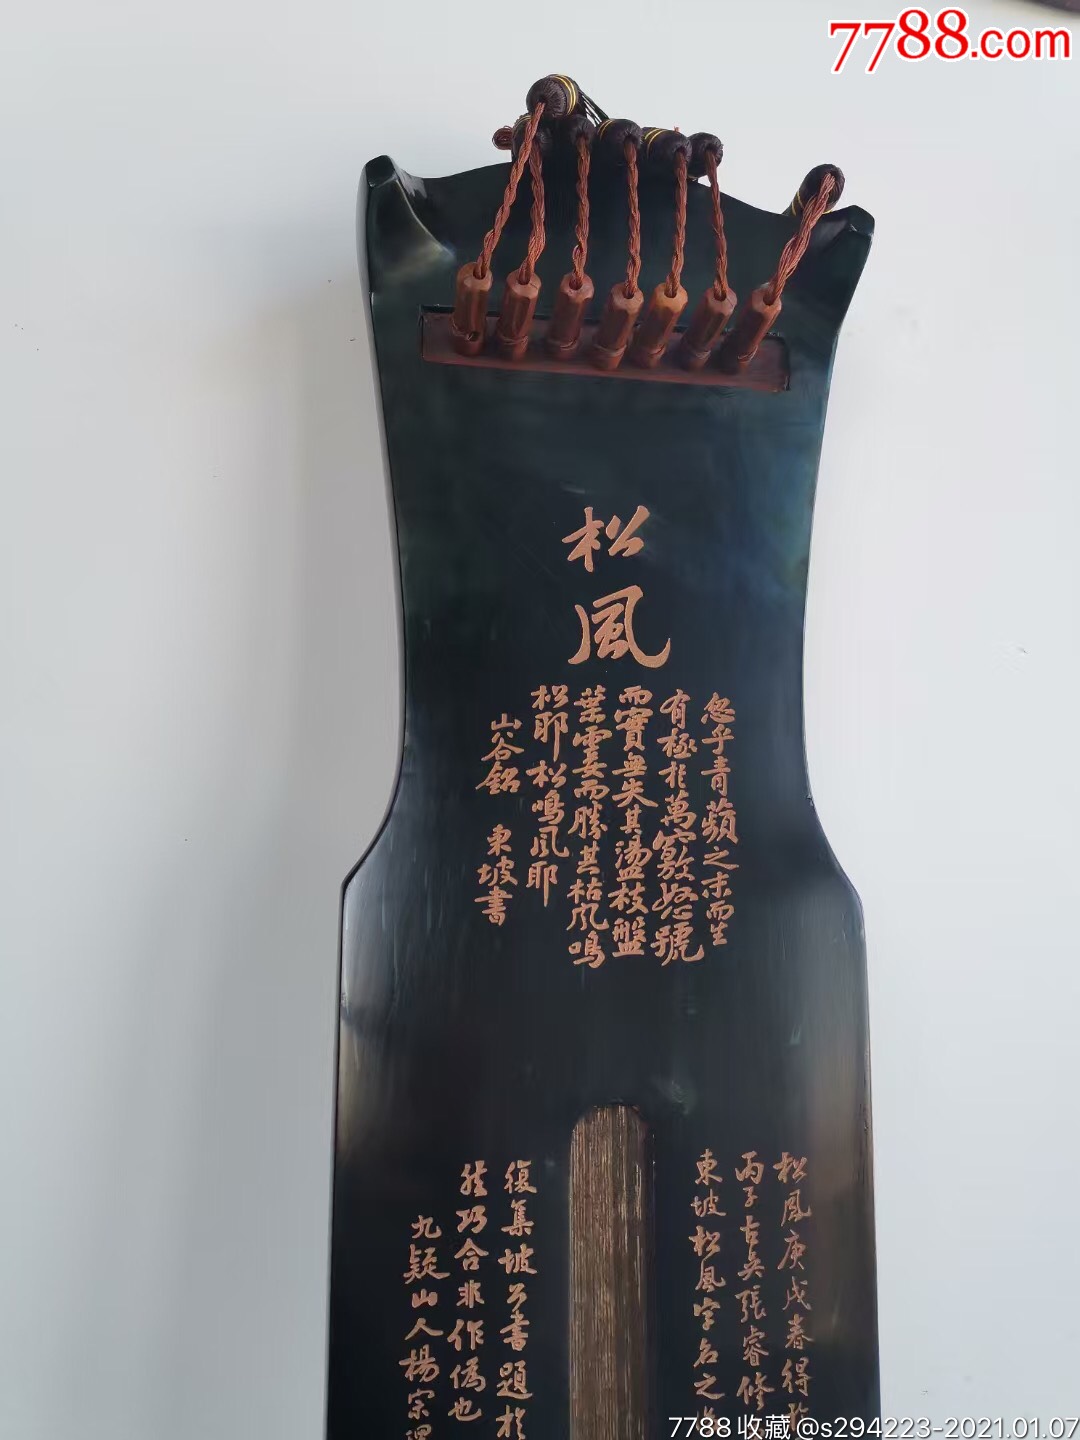 7788.com
松風
忽乎青蘋之末而生
有極於萬竅怒號
而實無失其盪枝盤
葉霎而勝其枯風鳴
松耶松鳴風耶
山谷銘 東坡書
松風庚戌春得於
丙子古吳張睿修
東坡松風字名之
復集坡公書題於
然巧合非作偽也
九疑山人楊宗
7788收藏@s294223-2021.01.07